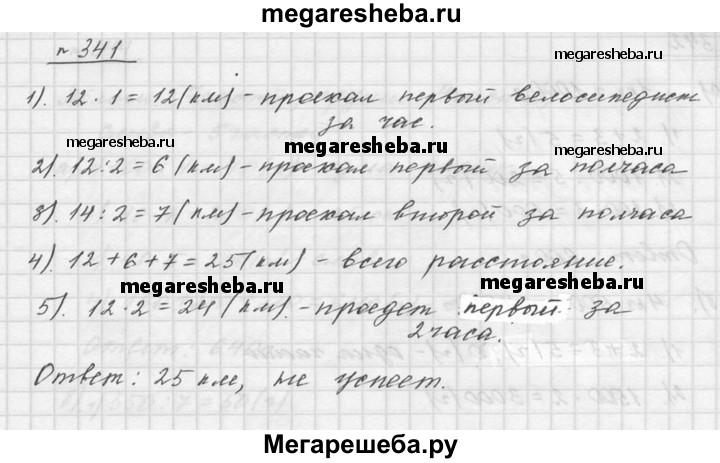 megaresheba.ru
n 341
megaresheba.ru
1). 12 · 1 = 12 (км) - проехал первый велосипедист
за час.
megaresheba.ru
megaresheba.ru
megaresheba.ru
2). 12 : 2 = 6 (км) - проехал первый за полчаса
3). 14 : 2 = 7 (км) - проехал второй за полчаса
4). 12 + 6 + 7 = 25 (км) - всего расстояние.
megaresheba.ru
megaresheba.ru
5). 12 · 2 = 24 (км) - проедет первый за
2 часа.
Ответ: 25 км, не успеет.
Мегарешеба.ру